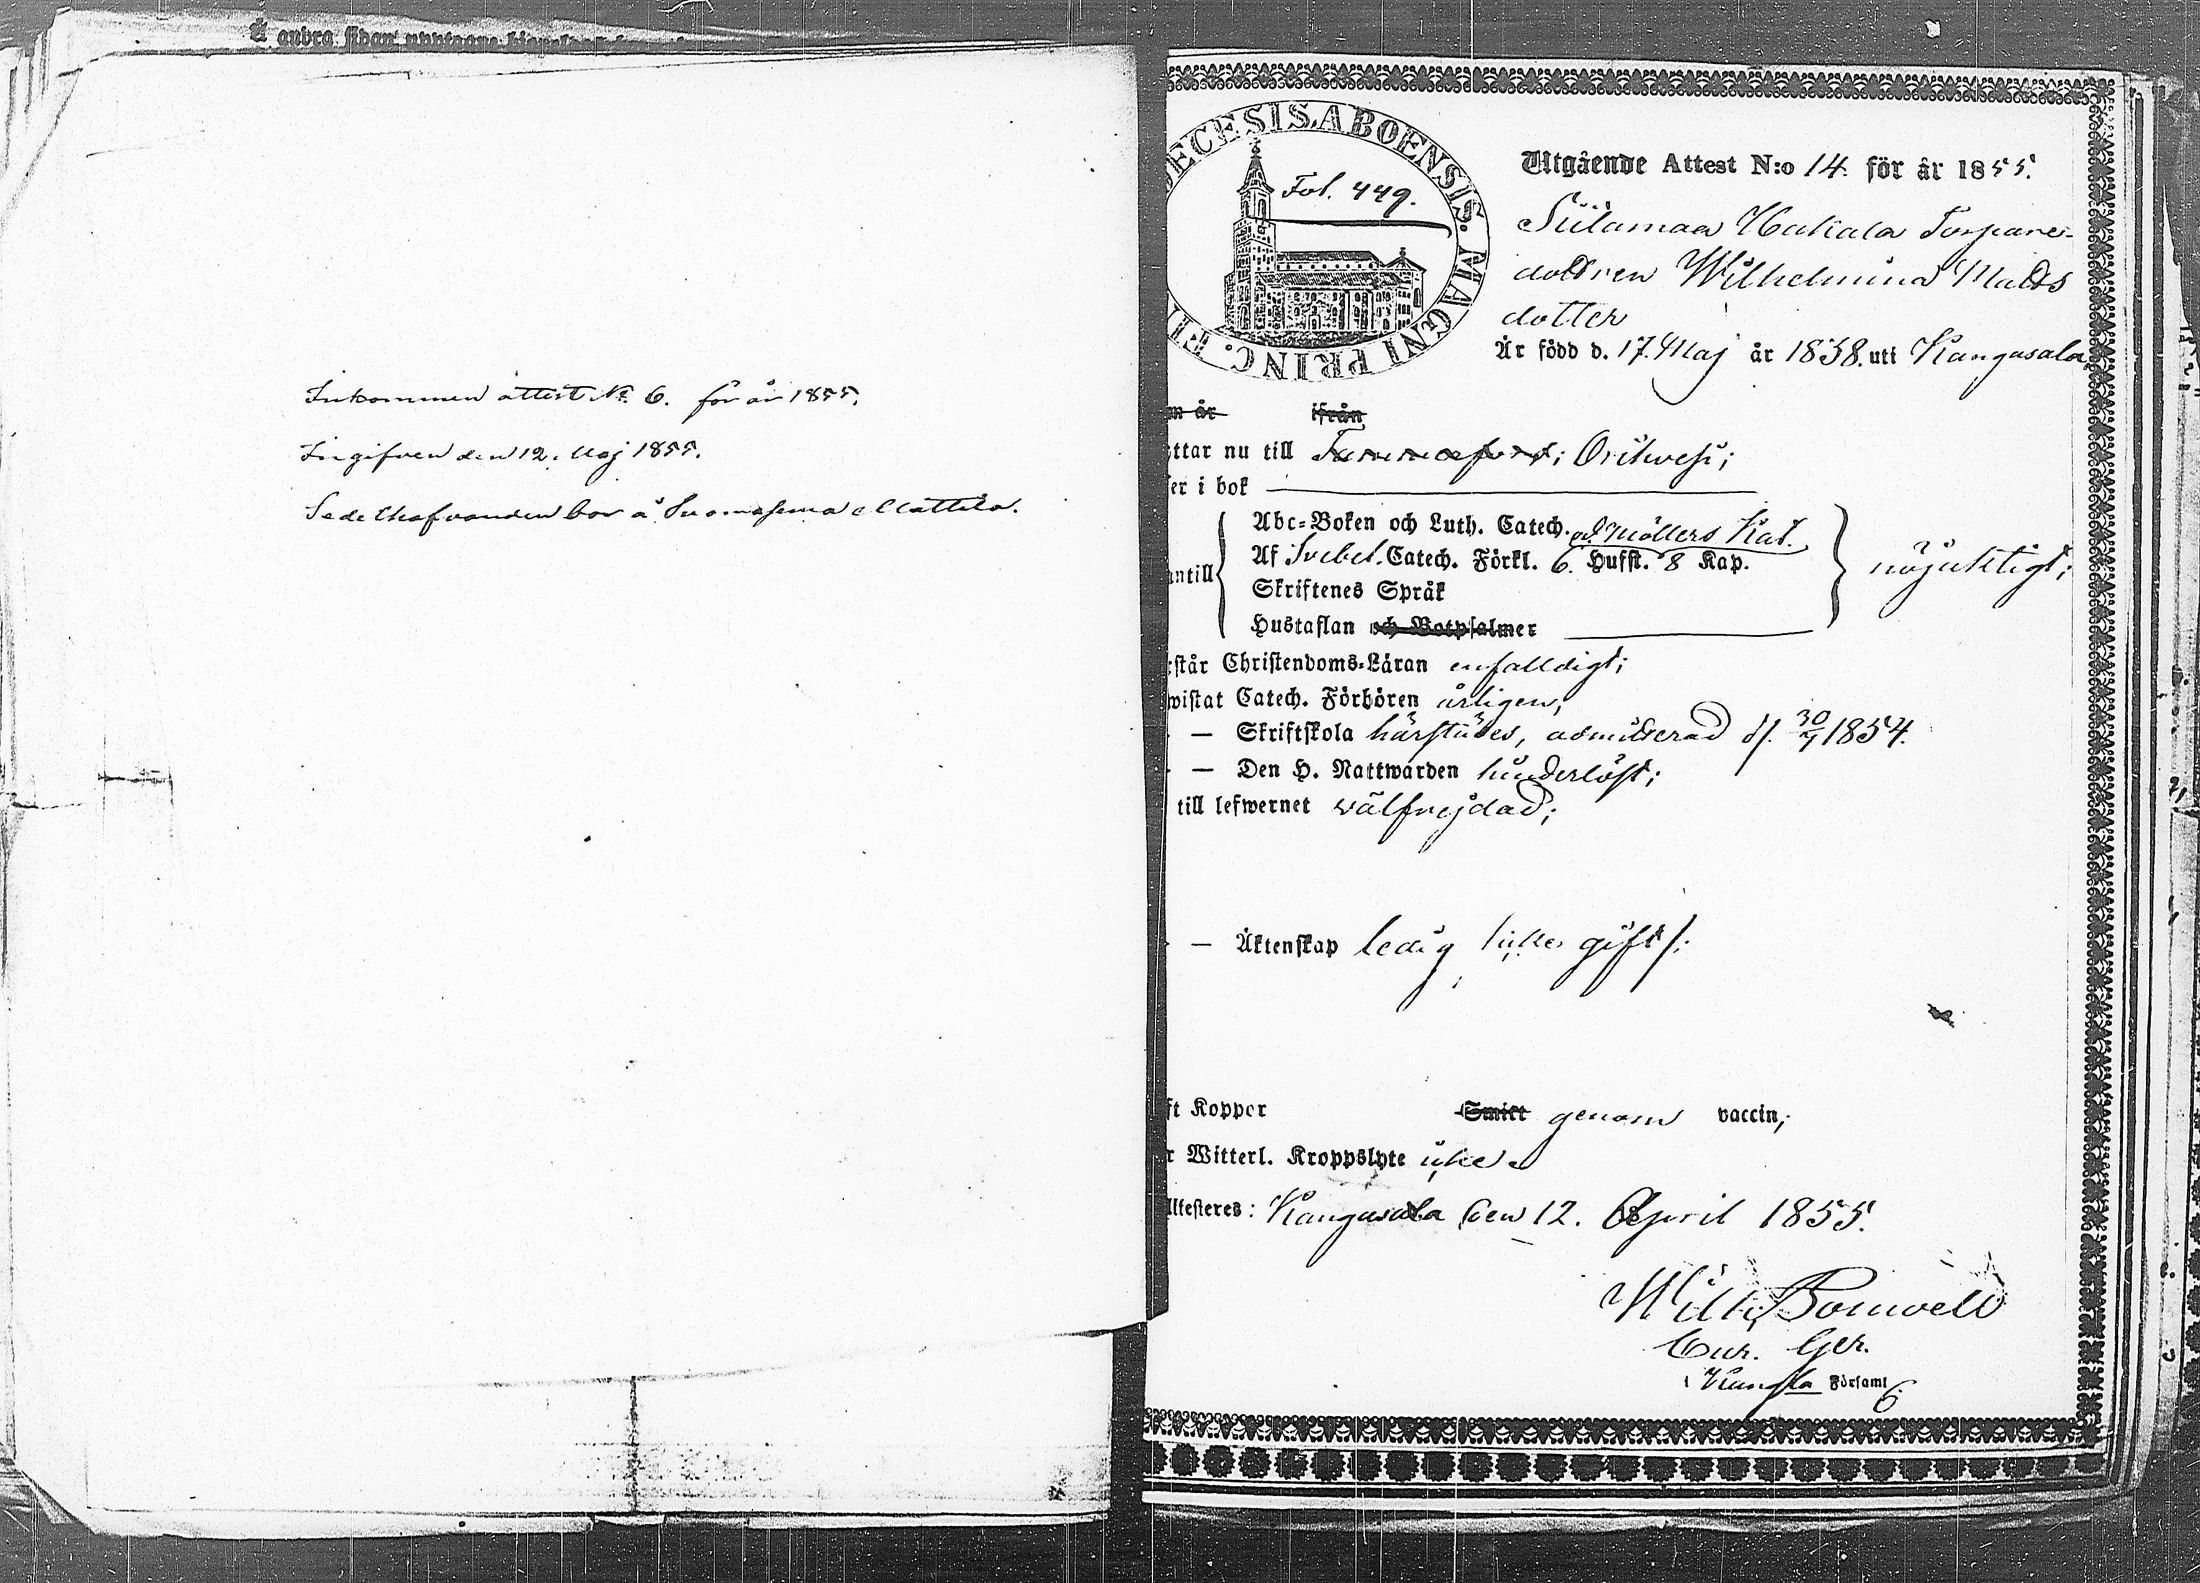 Inkommen attest No 6. för år 1855.
Ingifven den 12. Maj 1855.
Sedelhafvanden bor å Suomasema Mattila.
DECESIS. ABOENSIS. MAGNI PRINC. FI
Fol. 449.
Utgående Attest N:o 14. för år 1855.
Siilamaa Hakala Torpare-
dottren Wilhelmina Matts
dotter
Är född d. 17. Maj år 1838. uti Kangasala,
m är ifrån
ttar nu till Tammefors; Orihvesi;
er i bok
Abc-Boken och Luth. Catech. och Möllers Kat.
Af Svebel. Catech. Förkl. 6. Hufst. 8 Kap.
ntill
nöjaktigt;
Skriftenes Språk
Hustaflan och Botpsalmer
rstår Christendoms-Läran enfalldigt;
wistat Catech. Förhören årligen,
— Skriftskola härstädes, admitterad d. 30/7 1854.
— Den H. Nattwarden hinderlöst;
till lefwernet välfrejdad;
— Äktenskap ledig /icke gift/;
ft Koppor Smitt genom vaccin;
r Witterl. Kroppslyte icke
ttesteres: Kangasala den 12. April 1855.
Wilh. Bonwell
Cur. Ger.
i Kang:la Församl
6.